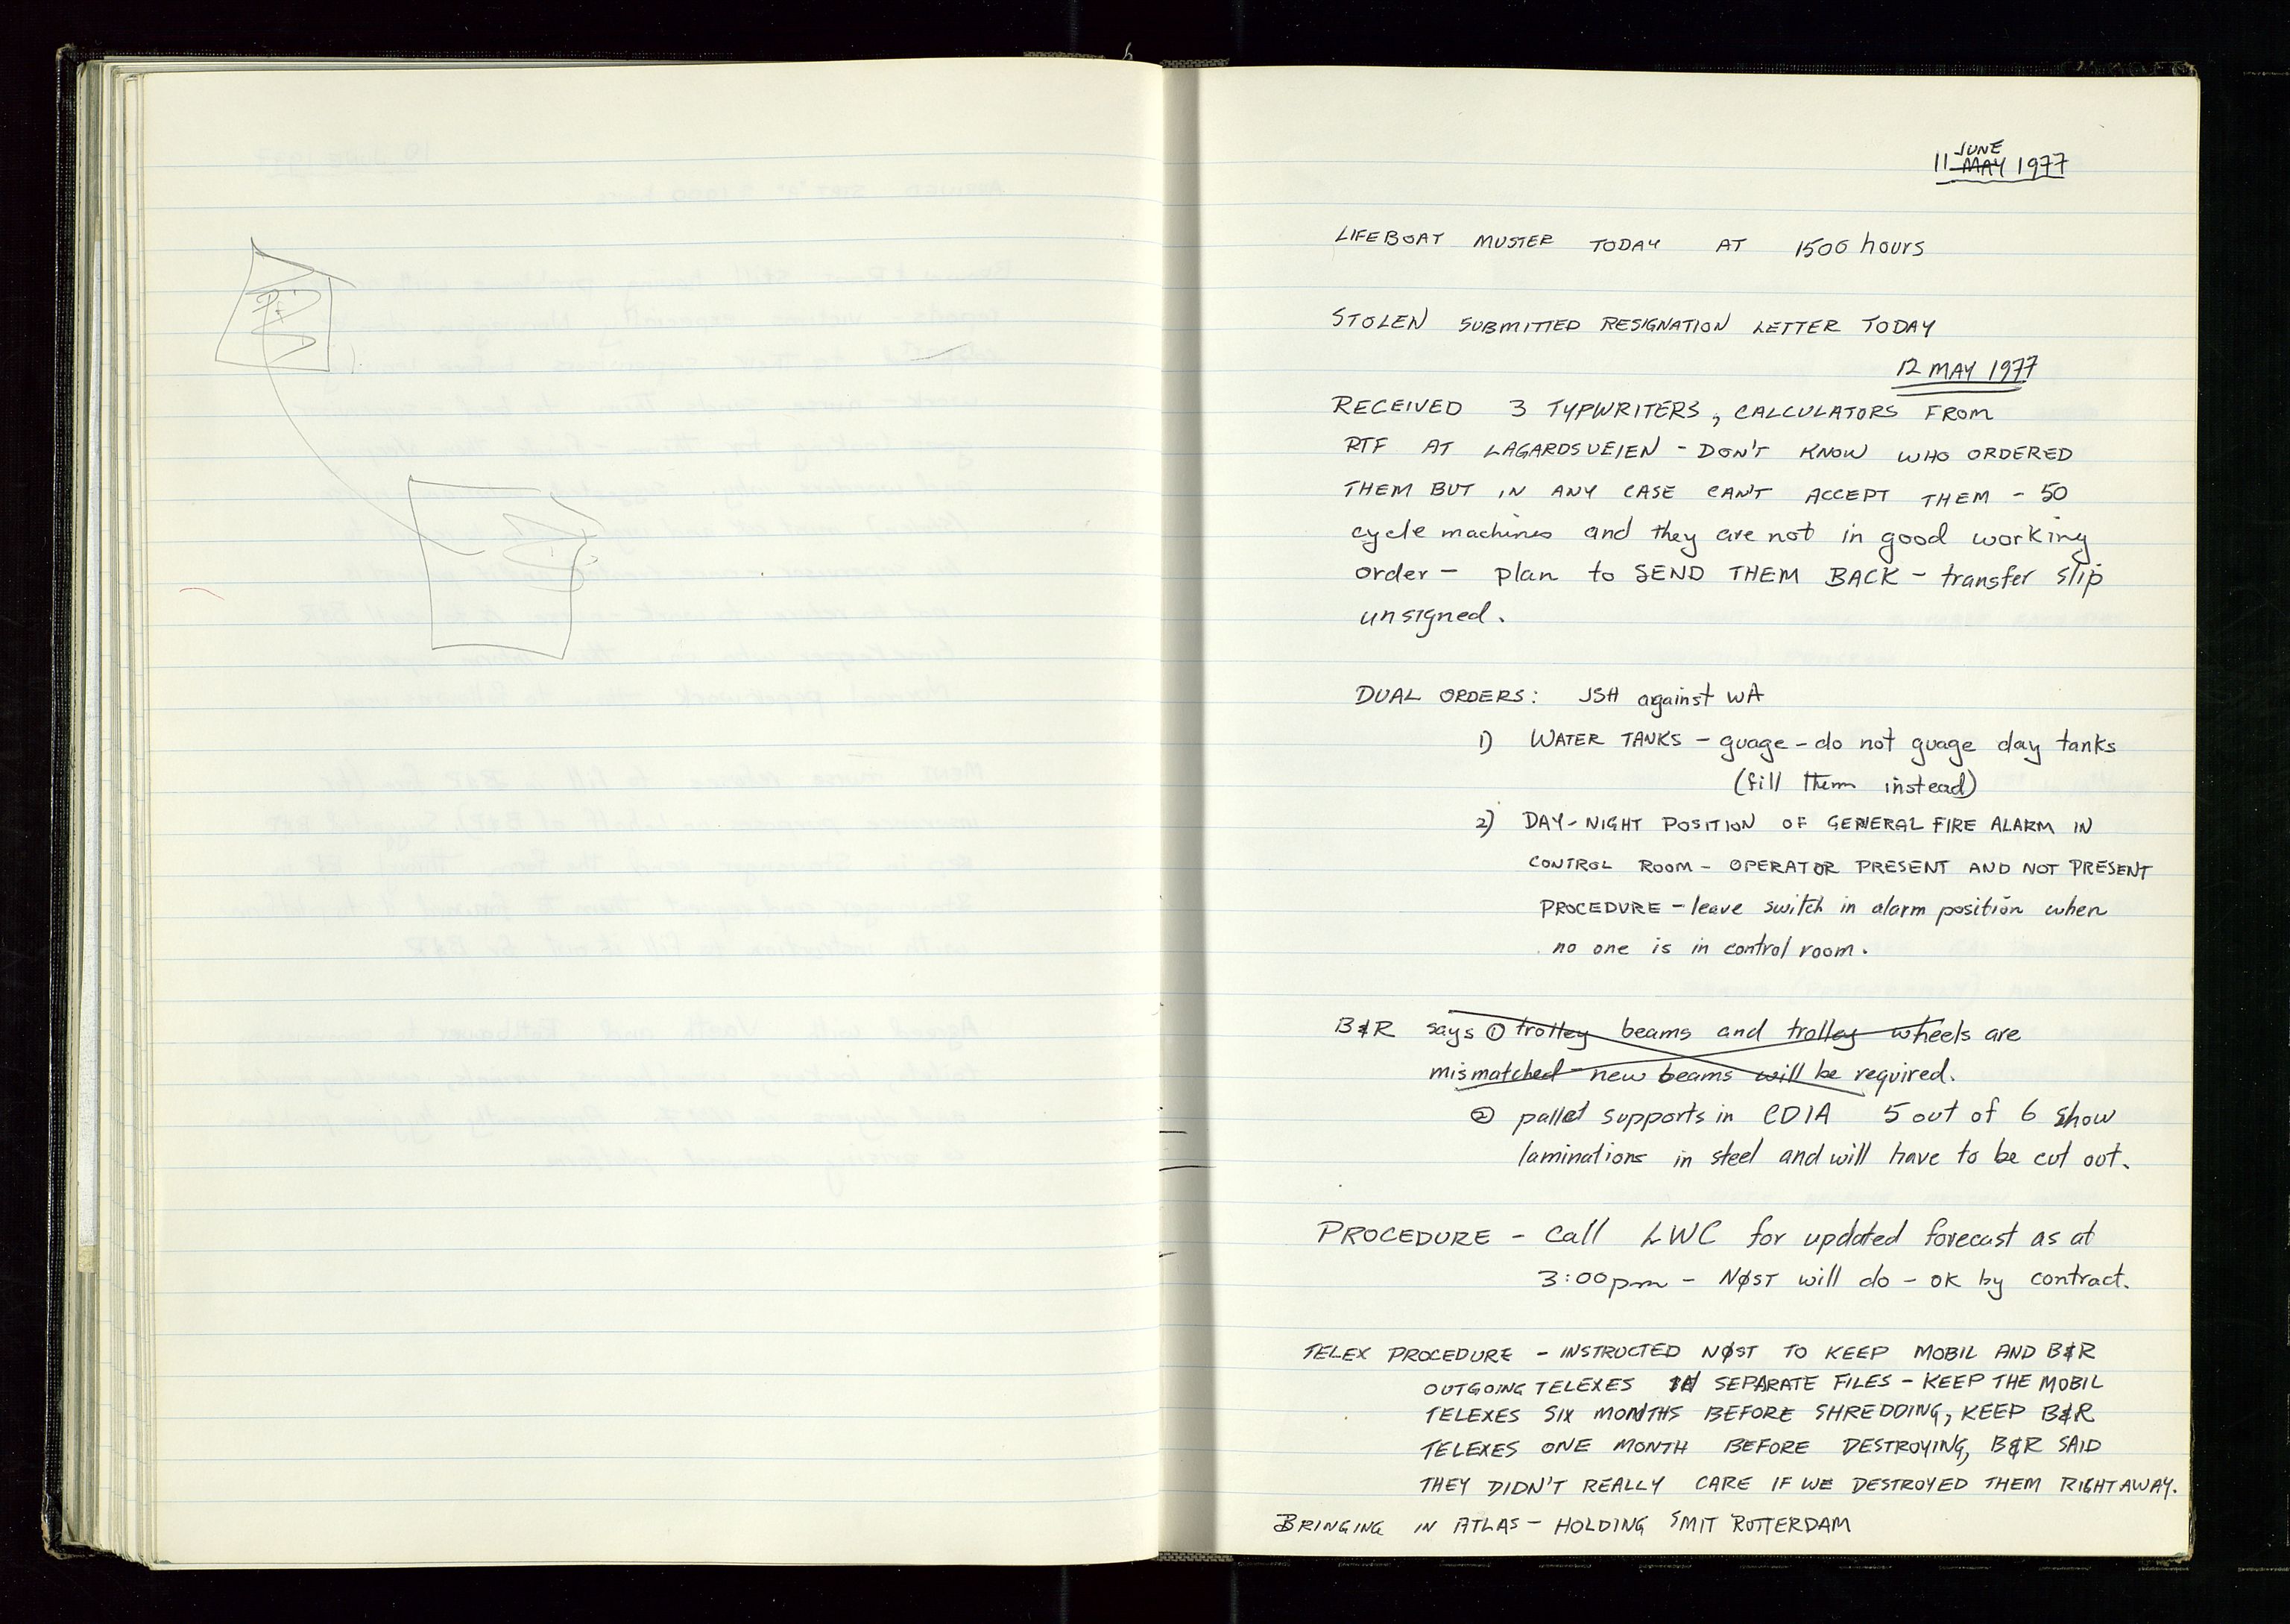 JUNE
11 MAY 1977
LIFEBOAT MUSTER TODAY AT 1500 hours
STOLEN SUBMITTED RESIGNATION LETTER TODAY
12 MAY 1977
RECEIVED 3 TYPWRITERS, CALCULATORS FROM
RTF AT LAGARDSVEIEN - DON'T KNOW WHO ORDERED
THEM BUT IN ANY CASE CAN'T ACCEPT THEM - 50
cycle machines and they are not in good working
order - plan to SEND THEM BACK - transfer slip
unsigned.
DUAL ORDERS: JSH against WA
1) WATER TANKS - guage - do not guage day tanks
(fill them instead)
2) DAY-NIGHT POSITION OF GENERAL FIRE ALARM IN
CONTROL ROOM - OPERATOR PRESENT AND NOT PRESENT
PROCEDURE - leave switch in alarm position when
no one is in control room.
B&R says ① trolley beams and trolley wheels are
mismatched - new beams will be required.
② pallet supports in CD1A 5 out of 6 show
laminations in steel and will have to be cut out.
PROCEDURE - Call LWC for updated forecast as at
3:00pm - NØST will do - OK by contract.
TELEX PROCEDURE - INSTRUCTED NØST TO KEEP MOBIL AND B&R
OUTGOING TELEXES IN SEPARATE FILES - KEEP THE MOBIL
TELEXES SIX MONTHS BEFORE SHREDDING, KEEP B&R
TELEXES ONE MONTH BEFORE DESTROYING, B&R SAID
THEY DIDN'T REALLY CARE IF WE DESTROYED THEM RIGHT AWAY.
BRINGING IN ATLAS - HOLDING SMIT ROTTERDAM